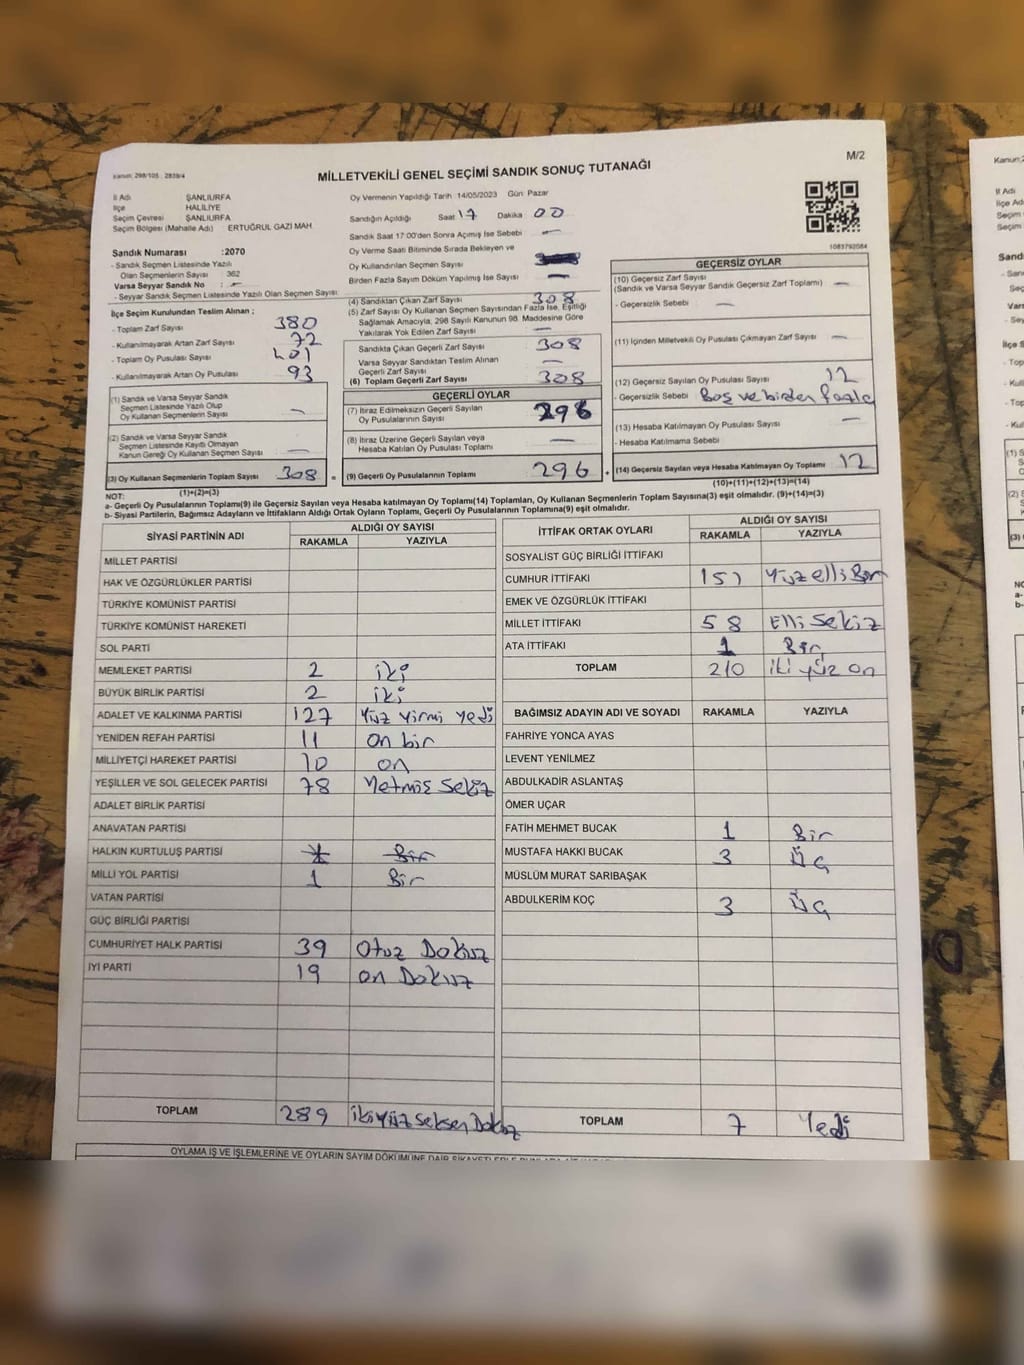 M/2
Kanun: 298/105 . 2839/4
MİLLETVEKİLİ GENEL SEÇİMİ SANDIK SONUÇ TUTANAĞI
İl Adı ŞANLIURFA
İlçe HALİLİYE
Seçim Çevresi ŞANLIURFA
Seçim Bölgesi (Mahalle Adı) ERTUĞRUL GAZİ MAH
Oy Vermenin Yapıldığı Tarih :14/05/2023 Gün: Pazar
Sandığın Açıldığı Saat 17 Dakika 00
Sandık Saat 17:00'den Sonra Açılmış İse Sebebi —
Oy Verme Saati Bitiminde Sırada Bekleyen ve
Oy Kullandırılan Seçmen Sayısı
Birden Fazla Sayım Döküm Yapılmış İse Sayısı —
1083792084
Sandık Numarası :2070
- Sandık Seçmen Listesinde Yazılı
Olan Seçmenlerin Sayısı 362
Varsa Seyyar Sandık No : —
- Seyyar Sandık Seçmen Listesinde Yazılı Olan Seçmen Sayısı:
İlçe Seçim Kurulundan Teslim Alınan ;
- Toplam Zarf Sayısı 380
- Kullanılmayarak Artan Zarf Sayısı 72
- Toplam Oy Pusulası Sayısı 401
- Kullanılmayarak Artan Oy Pusulası 93
(1) Sandık ve Varsa Seyyar Sandık
Seçmen Listesinde Yazılı Olup
Oy Kullanan Seçmenlerin Sayısı —
(2) Sandık ve Varsa Seyyar Sandık
Seçmen Listesinde Kayıtlı Olmayan
Kanun Gereği Oy Kullanan Seçmenlerin Sayısı —
(3) Oy Kullanan Seçmenlerin Toplam Sayısı 308
(1)+(2)=(3)
(4) Sandıktan Çıkan Zarf Sayısı 308
(5) Zarf Sayısı Oy Kullanan Seçmen Sayısından Fazla İse, Eşitliği
Sağlamak Amacıyla; 298 Sayılı Kanunun 98. Maddesine Göre
Yakılarak Yok Edilen Zarf Sayısı —
Sandıkta Çıkan Geçerli Zarf Sayısı 308
Varsa Seyyar Sandıktan Teslim Alınan
Geçerli Zarf Sayısı —
(6) Toplam Geçerli Zarf Sayısı 308
GEÇERLİ OYLAR
(7) İtiraz Edilmeksizin Geçerli Sayılan
Oy Pusulalarının Sayısı 296
(8) İtiraz Üzerine Geçerli Sayılan veya
Hesaba Katılan Oy Pusulaları Toplamı —
(9) Geçerli Oy Pusulalarının Toplamı 296
GEÇERSİZ OYLAR
(10) Geçersiz Zarf Sayısı
(Sandık ve Varsa Seyyar Sandık Geçersiz Zarf Toplamı) —
- Geçersizlik Sebebi : —
(11) İçinden Milletvekili Oy Pusulası Çıkmayan Zarf Sayısı —
(12) Geçersiz Sayılan Oy Pusulası Sayısı 12
- Geçersizlik Sebebi Boş ve birden fazla
(13) Hesaba Katılmayan Oy Pusulası Sayısı —
- Hesaba Katılmama Sebebi
(14) Geçersiz Sayılan veya Hesaba Katılmayan Oy Toplamı 12
(10)+(11)+(12)+(13)=(14)
NOT:
a- Geçerli Oy Pusulalarının Toplamı(9) ile Geçersiz Sayılan veya Hesaba katılmayan Oy Toplamı(14) Toplamları, Oy Kullanan Seçmenlerin Toplam Sayısına(3) eşit olmalıdır. (9)+(14)=(3)
b- Siyasi Partilerin, Bağımsız Adayların ve İttifakların Aldığı Ortak Oyların Toplamı, Geçerli Oy Pusulalarının Toplamına(9) eşit olmalıdır.
SİYASİ PARTİNİN ADI ALDIĞI OY SAYISI
RAKAMLA YAZIYLA
MİLLET PARTİSİ
HAK VE ÖZGÜRLÜKLER PARTİSİ
TÜRKİYE KOMÜNİST PARTİSİ
TÜRKİYE KOMÜNİST HAREKETİ
SOL PARTİ
MEMLEKET PARTİSİ 2 iki
BÜYÜK BİRLİK PARTİSİ 2 iki
ADALET VE KALKINMA PARTİSİ 127 Yüz Yirmi Yedi
YENİDEN REFAH PARTİSİ 11 On bir
MİLLİYETÇİ HAREKET PARTİSİ 10 on
YEŞİLLER VE SOL GELECEK PARTİSİ 78 Yetmiş Sekiz
ADALET BİRLİK PARTİSİ
ANAVATAN PARTİSİ
HALKIN KURTULUŞ PARTİSİ 1 Bir
MİLLİ YOL PARTİSİ 1 Bir
VATAN PARTİSİ
GÜÇ BİRLİĞİ PARTİSİ
CUMHURİYET HALK PARTİSİ 39 Otuz Dokuz
İYİ PARTİ 19 on Dokuz
TOPLAM 289 ikiYüz Seksen Dokuz
İTTİFAK ORTAK OYLARI ALDIĞI OY SAYISI
RAKAMLA YAZIYLA
SOSYALİST GÜÇ BİRLİĞİ İTTİFAKI
CUMHUR İTTİFAKI 151 Yüz elli Bir
EMEK VE ÖZGÜRLÜK İTTİFAKI
MİLLET İTTİFAKI 58 Elli Sekiz
ATA İTTİFAKI 1 Bir
TOPLAM 210 iki yüz on
BAĞIMSIZ ADAYIN ADI VE SOYADI RAKAMLA YAZIYLA
FAHRİYE YONCA AYAS
LEVENT YENİLMEZ
ABDULKADİR ASLANTAŞ
ÖMER UÇAR
FATİH MEHMET BUCAK 1 Bir
MUSTAFA HAKKI BUCAK 3 Üç
MÜSLÜM MURAT SARIBAŞAK
ABDULKERİM KOÇ 3 Üç
TOPLAM 7 Yedi